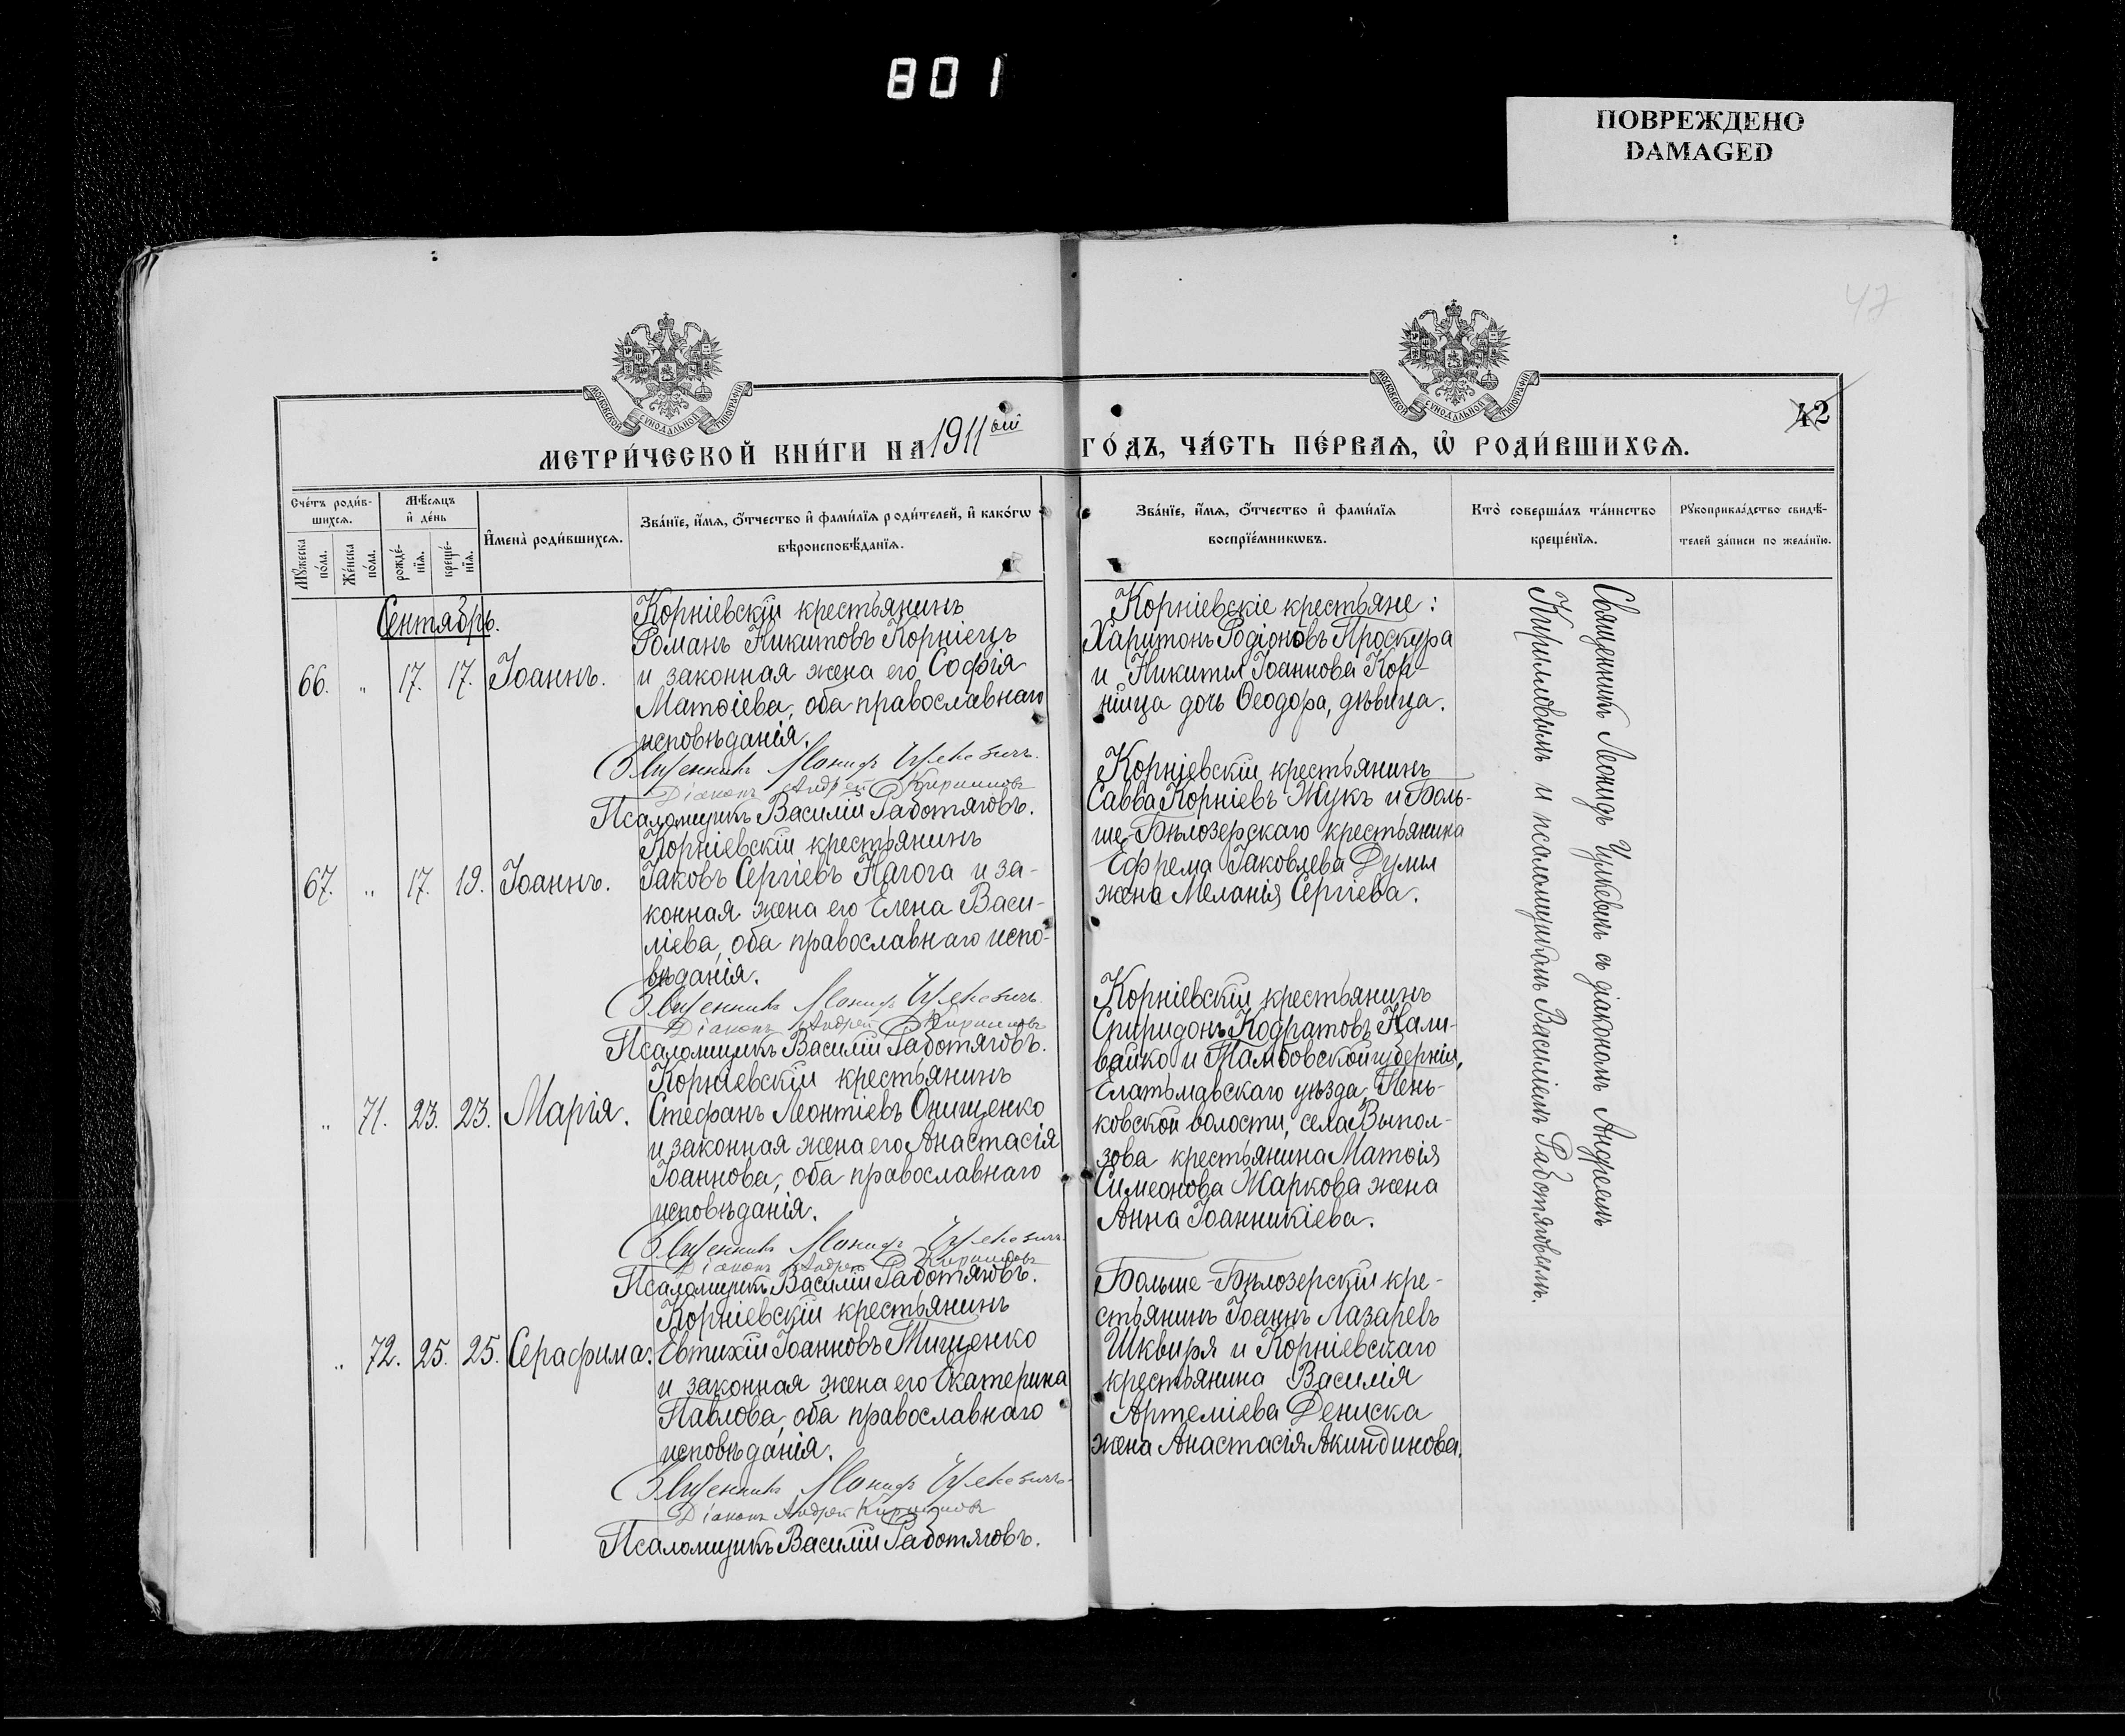 801
ПОВРЕЖДЕНО
DAMAGED
47
42
МОСКОВСКОЙ СѴНОДАЛЬНОЙ ТИПОГРАФІИ
МОСКОВСКОЙ СѴНОДАЛЬНОЙ ТИПОГРАФІИ
МЕТРИ́ЧЕСКОЙ КНИ́ГИ НА 1911ый ГО́ДЪ, ЧА́СТЬ ПЕ́РВАѦ, Ѡ҆ РОДИ́ВШИХСѦ.
Сче́тъ роди́в-
шихсѧ.
Мꙋ́жеска
по́ла.
Же́нска
по́ла.
Мѣ́сѧцъ
и҆ де́нь
рожде́-
нїѧ.
креще́-
нїѧ.
И҆мена̀ роди́вшихсѧ.
Зва́нїе, и҆́мѧ, ѻ҆́тчество и҆ фами́лїѧ роди́телей, и҆ како́гѡ
вѣроисповѣ́данїѧ.
Зва́нїе, и҆́мѧ, ѻ҆́тчество и҆ фами́лїѧ
воспрїе́мникѡвъ.
Кто̀ соверша́лъ та́инство
креще́нїѧ.
Рꙋкоприкла́дство свидѣ́-
телей за́писи по жела́нїю.
Сентябрь.
66. „ 17. 17. Іоаннъ.
Корніевскій крестьянинъ
Романъ Никитовъ Корніецъ
и законная жена его Софія
Матѳіева, оба православнаго
исповѣданія.
Священникъ Леонидъ Чулкевичъ.
Діаконъ Андрей Кирилловъ
Псаломщикъ Василій Работяговъ.
Корніевскіе крестьяне:
Харитонъ Родіоновъ Проскура
и Никиты Іоаннова Кор-
нійца дочь Ѳеодора, дѣвица.
67. „ 17. 19. Іоаннъ.
Корніевскій крестьянинъ
Іаковъ Сергіевъ Нагога и за-
конная жена его Елена Васи-
ліева, оба православнаго испо-
вѣданія.
Священникъ Леонидъ Чулкевичъ.
Діаконъ Андрей Кирилловъ
Псаломщикъ Василій Работяговъ.
Корніевскій крестьянинъ
Савва Корніевъ Жукъ и Боль-
ше-Бѣлозерскаго крестьянина
Ефрема Іаковлева Думы
жена Меланія Сергіева.
„ 71. 23. 23. Марія.
Корніевскій крестьянинъ
Стефанъ Леонтіевъ Онищенко
и законная жена его Анастасія
Іоаннова, оба православнаго
исповѣданія.
Священникъ Леонидъ Чулкевичъ.
Діаконъ Андрей Кирилловъ
Псаломщикъ Василій Работяговъ.
Корніевскій крестьянинъ
Спиридонъ Кодратовъ Нали-
вайко и Тамбовской губерніи,
Елатьмдвскаго уѣзда, Пень-
ковской волости, села Выпол-
зова крестьянина Матѳія
Симеонова Жаркова жена
Анна Іоанникіева.
„ 72. 25. 25. Серафима.
Корніевскій крестьянинъ
Евтихій Іоанновъ Тищенко
и законная жена его Екатерина
Павлова, оба православнаго
исповѣданія.
Священникъ Леонидъ Чулкевичъ.
Діаконъ Андрей Кирилловъ
Псаломщикъ Василій Работяговъ.
Больше-Бѣлозерскій кре-
стьянинъ Іоаннъ Лазаревъ
Шквыря и Корніевскаго
крестьянина Василія
Артеміева Дениска
жена Анастасія Акиндинова.
Священникъ Леонидъ Чулкевичъ съ діакономъ Андреемъ
Кирилловымъ и псаломщикомъ Василіемъ Работяговымъ.